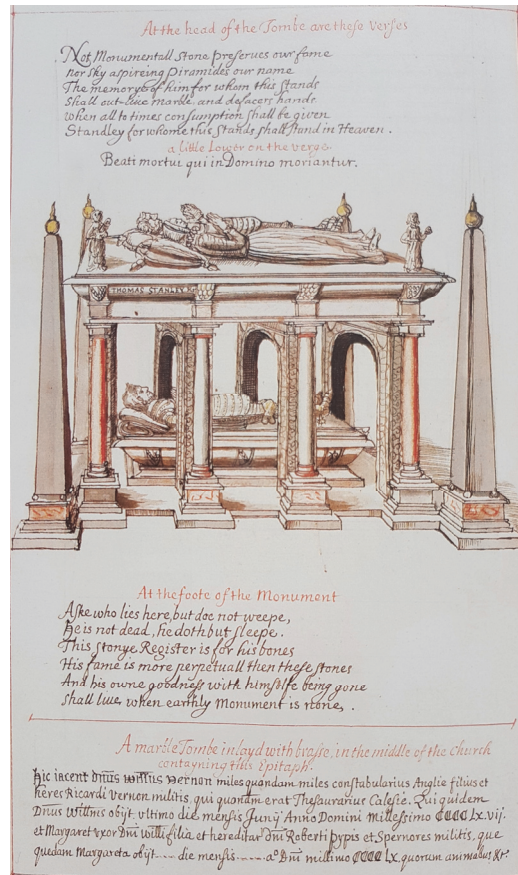 At the head of the Tombe are these verses
Not Monumentall stone preserves our fame
nor sky aspireing Piramides our name
The memorye of him for whom this stands
Shall out-live marble and defacers hands
when all to times consumption shall be given
Standley for whome this Stands shall stand in Heaven.
a little Lower on the verge.
Beati mortui qui in Domino moriantur.
THOMAS STANLEY
At the foote of the Monument
Aske who lies here, but doe not weepe,
he is not dead, he doth but sleepe.
This stonye Register is for his bones
His fame is more perpetuall then these stones
And his owne goodness with himselfe being gone
Shall live when earthly Monument is none.
A marble Tombe inlayd with brasse, in the middle of the Church
contayning this Epitaph.
hic iacent dn̄us willm̄us vernon miles quandam miles constabularius Anglie filius et
heres Ricardi vernon militis, qui quondam erat Thesaurarius Calesie. Qui quidem
Dn̄us Willmīs obijt vltimo die mensis Junij Anno Domini Millessimo CCCC Lx.vij.
et Margaret vxor Dn̄i willi filia et hereditar Dn̄i Roberti pypis et Spernores militis, que
quedam Margareta obijt .... die mensis ..... aº Dn̄i millimo CCCC Lx, quorum animabus &r.